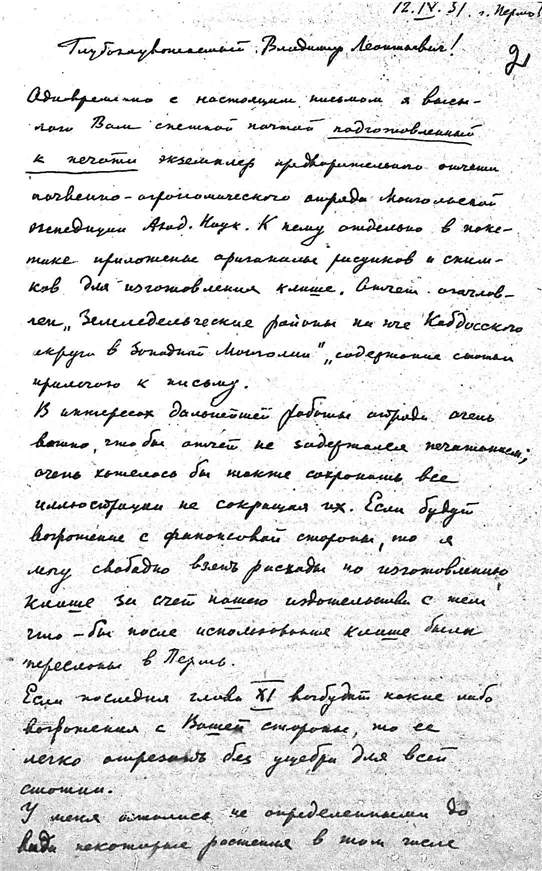 12.IV.31. г. Пермь
2
Глубокоуважаемый Владимир Леонтьевич!
Одновременно с настоящим письмом я высы-
лаю Вам спешной почтой подготовленный
к печати экземпляр предворительного отчета
почвенно-агрономического отряда Монгольской
экспедиции Акад. Наук. К нему отдельно в паке-
тике приложены оригиналы рисунков и сним-
ков для изготовления клише. Отчет озаглав-
лен „Земледельческие районы на юге Кобдосского
округа в Западной Монголии“, содержание статьи
прилагаю к письму.
В интересах дальнейшей работы отряда очень
важно, чтобы отчет не задержался печатанием;
очень хотелось бы также сохранить все
иллюстрации не сокращая их. Если будут
возражение с финансовой стороны, то я
могу свободно взять расходы по изготовлению
клише за счет нашего издательства с тем
что-бы после использования клише были
пересланы в Пермь.
Если последняя глава XI возбудит какие либо
возражения с Вашей стороны, то ее
легко отрезать без ущерба для всей
статьи.
У меня остались не определенными до
вида некоторые растения в том числе